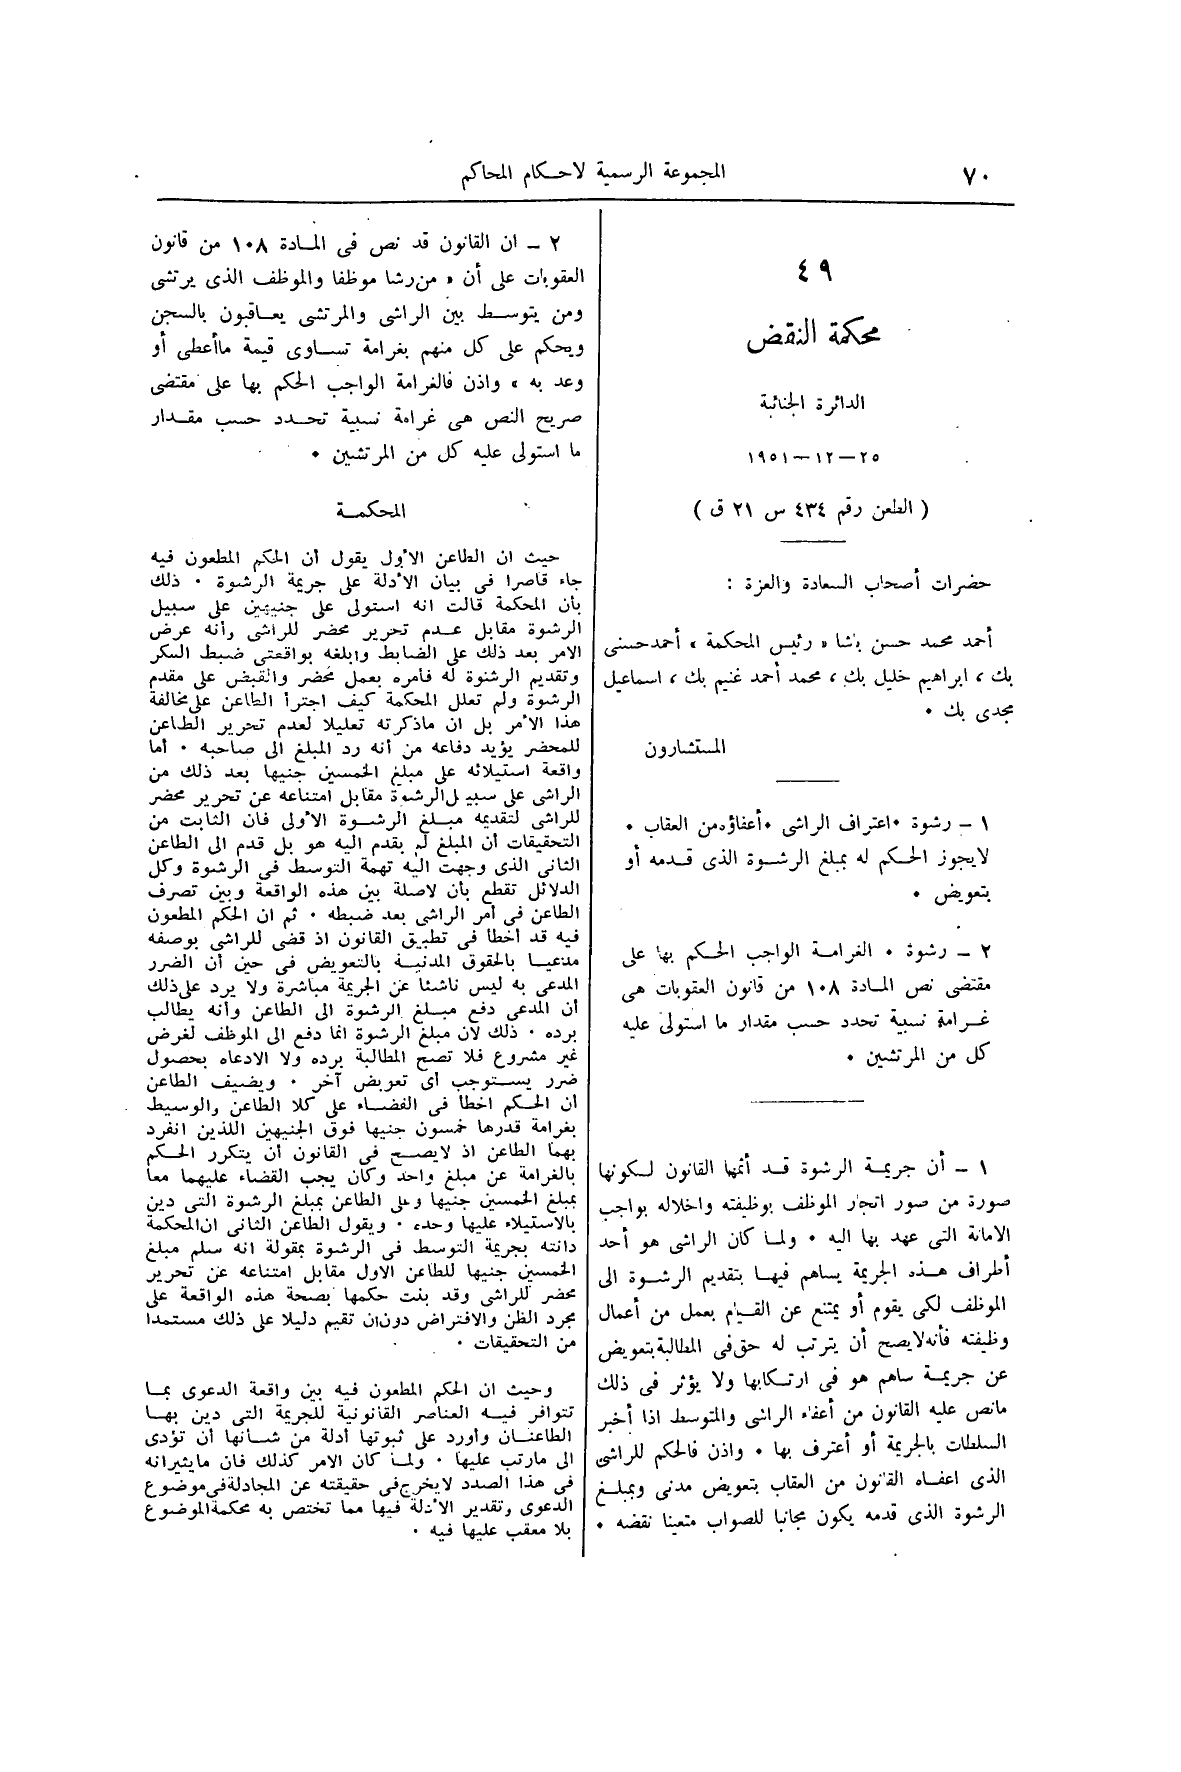 ٧٠
المجموعة الرسمية لاحكام المحاكم
٤٩
محكمة النقض
الدائرة الجنائية
٢٥ — ١٢ — ١٩٥١
( الطعن رقم ٤٣٤ س ٢١ ق )
حضرات أصحاب السعادة والعزة :
أحمد محمد حسن باشا « رئيس المحكمة » أحمد حسنى
بك ، ابراهيم خليل بك ، محمد أحمد غنيم بك ، اسماعيل
مجدى بك .
المستشارون
١ – رشوة . اعتراف الراشى . أعفاؤه من العقاب .
لا يجوز الحكم له بمبلغ الرشوة الذى قدمه أو
بتعويض .
٢ – رشوة . الغرامة الواجب الحكم بها على
مقتضى نص المادة ١٠٨ من قانون العقوبات هى
غرامة نسبية تحدد حسب مقدار ما استولى عليه
كل من المرتشين .
١ – أن جريمة الرشوة قد أثمها القانون لكونها
صورة من صور اتجار الموظف بوظيفته واخلاله بواجب
الامانة التى عهد بها اليه . ولما كان الراشى هو أحد
أطراف هذه الجريمة يساهم فيها بتقديم الرشوة الى
الموظف لكى يقوم أو يمتنع عن القيام بعمل من أعمال
وظيفته فأنه لا يصح أن يترتب له حق فى المطالبة بتعويض
عن جريمة ساهم هو فى ارتكابها ولا يؤثر فى ذلك
مانص عليه القانون من أعفاء الراشى والمتوسط اذا أخبر
السلطات بالجريمة أو أعترف بها . واذن فالحكم للراشى
الذى اعفاه القانون من العقاب بتعويض مدنى وبمبلغ
الرشوة الذى قدمه يكون مجانبا للصواب متعينا نقضه .
٢ – ان القانون قد نص فى المادة ١٠٨ من قانون
العقوبات على أن « من رشا موظفا والموظف الذى يرتشى
ومن يتوسط بين الراشى والمرتشى يعاقبون بالسجن
ويحكم على كل منهم بغرامة تساوى قيمة ماأعطى أو
وعد به » واذن فالغرامة الواجب الحكم بها على مقتضى
صريح النص هى غرامة نسبية تحدد حسب مقدار
ما استولى عليه كل من المرتشين .
المحكمة
حيث ان الطاعن الأول يقول أن الحكم المطعون فيه
جاء قاصرا فى بيان الأدلة على جريمة الرشوة . ذلك
بأن المحكمة قالت انه استولى على جنيهين على سبيل
الرشوة مقابل عدم تحرير محضر للراشى وأنه عرض
الامر بعد ذلك على الضابط وابلغه بواقعتى ضبط السكر
وتقديم الرشوة له فأمره بعمل محضر والقبض على مقدم
الرشوة ولم تعلل المحكمة كيف اجترأ الطاعن على مخالفة
هذا الأمر بل ان ماذكرته تعليلا لعدم تحرير الطاعن
للمحضر يؤيد دفاعه من أنه رد المبلغ الى صاحبه . أما
واقعة استيلائه على مبلغ الخمسين جنيها بعد ذلك من
الراشى على سبيل الرشوة مقابل امتناعه عن تحرير محضر
للراشى لتقديمه مبلغ الرشوة الأولى فان الثابت من
التحقيقات أن المبلغ لم يقدم اليه هو بل قدم الى الطاعن
الثانى الذى وجهت اليه تهمة التوسط فى الرشوة وكل
الدلائل تقطع بأن لاصلة بين هذه الواقعة وبين تصرف
الطاعن فى أمر الراشى بعد ضبطه . ثم ان الحكم المطعون
فيه قد أخطأ فى تطبيق القانون اذ قضى للراشى بوصفه
مدعيا بالحقوق المدنية بالتعويض فى حين أن الضرر
المدعى به ليس ناشئا عن الجريمة مباشرة ولا يرد على ذلك
أن المدعى دفع مبلغ الرشوة الى الطاعن وأنه يطالب
برده . ذلك لان مبلغ الرشوة انما دفع الى الموظف لغرض
غير مشروع فلا تصح المطالبة برده ولا الادعاء بحصول
ضرر يستوجب أى تعويض آخر . ويضيف الطاعن
أن الحكم اخطأ فى القضاء على كلا الطاعن والوسيط
بغرامة قدرها خمسون جنيها فوق الجنيهين اللذين انفرد
بهما الطاعن اذ لايصح فى القانون أن يتكرر الحكم
بالغرامة عن مبلغ واحد وكان يجب القضاء عليهما معا
بمبلغ الخمسين جنيها وعلى الطاعن بمبلغ الرشوة التى دين
بالاستيلاء عليها وحده . ويقول الطاعن الثانى ان المحكمة
دانته بجريمة التوسط فى الرشوة بمقولة انه سلم مبلغ
الخمسين جنيها للطاعن الاول مقابل امتناعه عن تحرير
محضر للراشى وقد بنت حكمها بصحة هذه الواقعة على
مجرد الظن والافتراض دون ان تقيم دليلا على ذلك مستمدا
من التحقيقات .
وحيث ان الحكم المطعون فيه بين واقعة الدعوى بما
تتوافر فيه العناصر القانونية للجريمة التى دين بها
الطاعنان وأورد على ثبوتها أدلة من شأنها أن تؤدى
الى مارتب عليها . ولما كان الامر كذلك فان مايثيرانه
فى هذا الصدد لايخرج فى حقيقته عن المجادلة فى موضوع
الدعوى وتقدير الأدلة فيها مما تختص به محكمة الموضوع
بلا معقب عليها فيه .